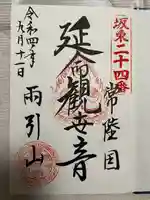 坂東二十四番
常陸国
延命観世音
雨引山
令和四年
九月十一日